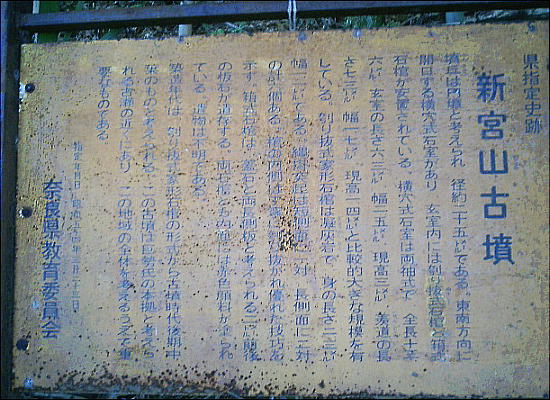 県指定史跡
新宮山古墳
墳丘は円墳と考えられ、径約二十五㍍である。東南方向に
開口する横穴式石室があり、玄室内には刳り抜式石棺と箱式
石棺が安置されている。横穴式石室は両袖式で、全長十三
六㍍、玄室の長さ六・三㍍、幅二・五㍍、現高三㍍、羨道の長
さ七・三㍍、幅一・七㍍、現高一・四㍍と比較的大きな規模を有
している。刳り抜式家形石棺は 身の長さ二・二㍍
幅一・ ㍍である。縄掛突起は短側面に一対、長側面に二対
の計六個ある。棺の内側は丁寧に刳り抜かれ優れた技巧を
示す。箱式石棺は、蓋石と両長側板と考えられる 前後
の板石が遺存する。両石棺とも内側には赤色顔料が塗られ
ている。遺物は不明である。
築造年代は、刳り抜式家形石棺の形式から古墳時代後期中
葉のものと考えられる。この古墳は巨勢氏の本拠と考えら
れる古瀬の近くにあり、この地域の古代を考えるうえで重
要なものである。
指定年月日 昭和五 年三月 日
奈良県教育委員会